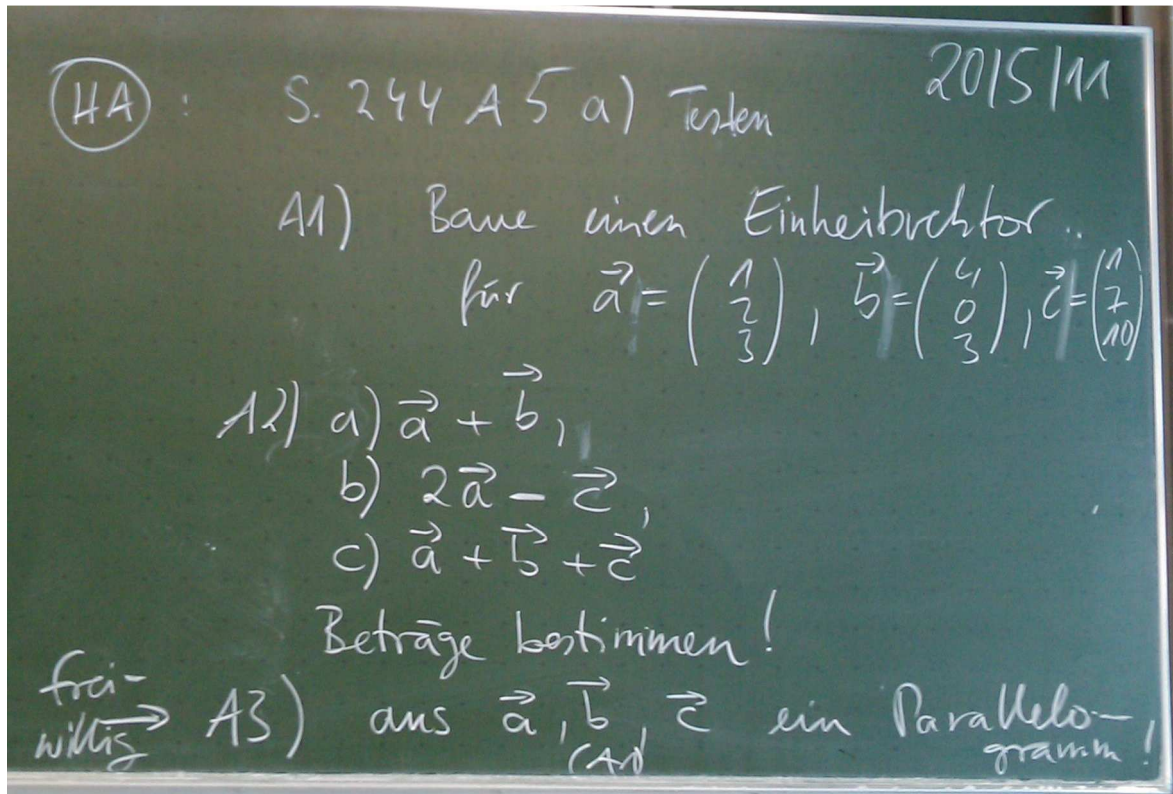 HA : S. 244 A 5 a) Testen 20/5/11
A1) Baue einen Einheitsvektor..
für a⃗ = (1 2 3), b⃗ = (4 0 3), c⃗ = (1 7 10)
A2) a) a⃗ + b⃗,
b) 2a⃗ - c⃗,
c) a⃗ + b⃗ + c⃗
Beträge bestimmen!
frei-
willig → A3) aus a⃗, b⃗, c⃗ ein Parallelo-
(A1) gramm!